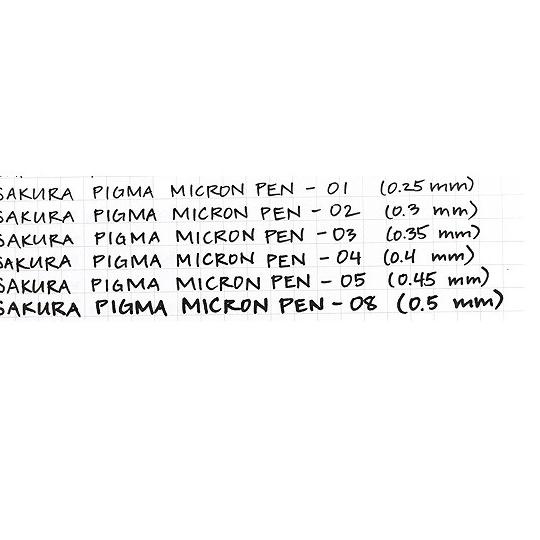 SAKURA PIGMA MICRON PEN - 01 (0.25 mm)
SAKURA PIGMA MICRON PEN - 02 (0.3 mm)
SAKURA PIGMA MICRON PEN - 03 (0.35 mm)
SAKURA PIGMA MICRON PEN - 04 (0.4 mm)
SAKURA PIGMA MICRON PEN - 05 (0.45 mm)
SAKURA PIGMA MICRON PEN - 08 (0.5 mm)